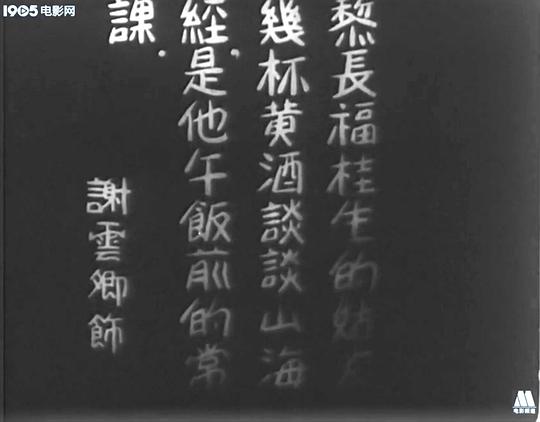 1905电影网
黎長福桂生的姑丈
幾杯黄酒談談山海
經，是他午飯前的常
課．
謝雲卿飾
电影频道